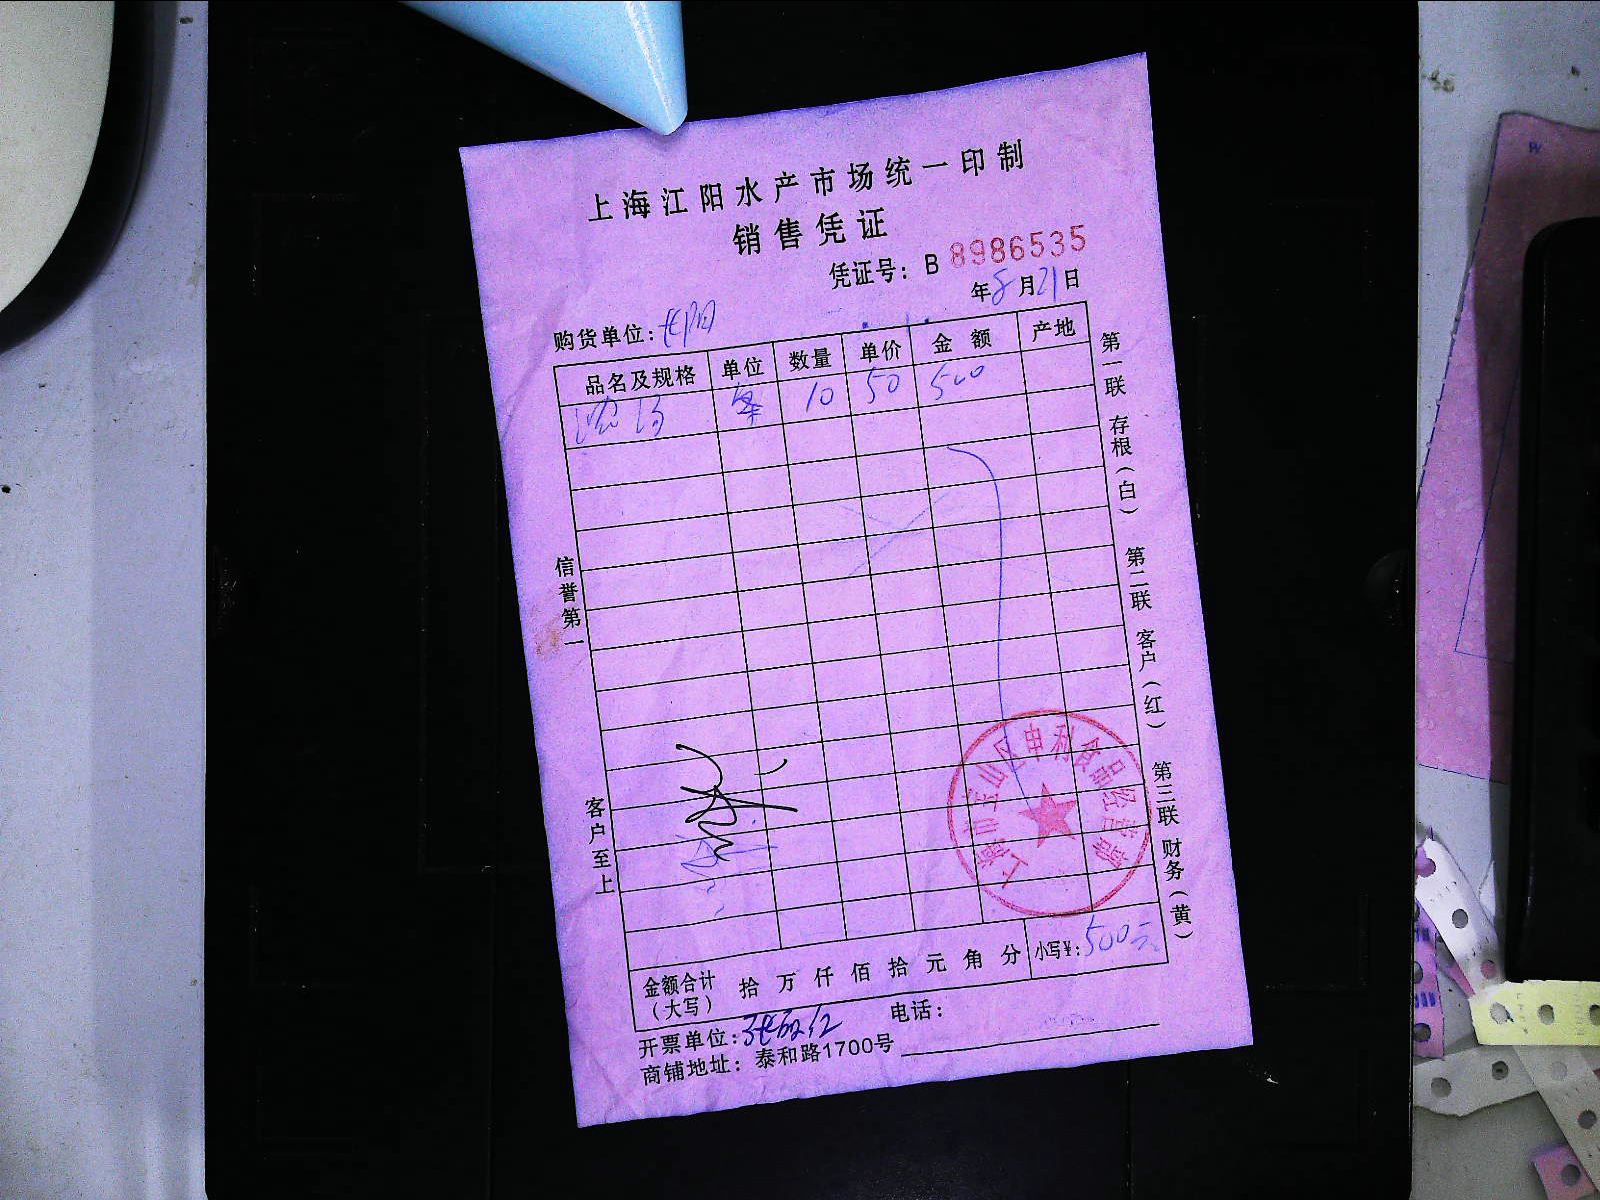 上海江阳水产市场统一印制
销售凭证
凭证号：B 8986535
年8月21日
购货单位：
品名及规格 单位 数量 单价 金额 产地
10 50 500
第一联 存根（白） 第二联 客户（红） 第三联 财务（黄）
信誉第一
客户至上
上海市宝山区申利食品经营部
金额合计（大写） 拾万仟佰拾元角分 小写¥：500元
开票单位： 电话：
商铺地址：泰和路1700号